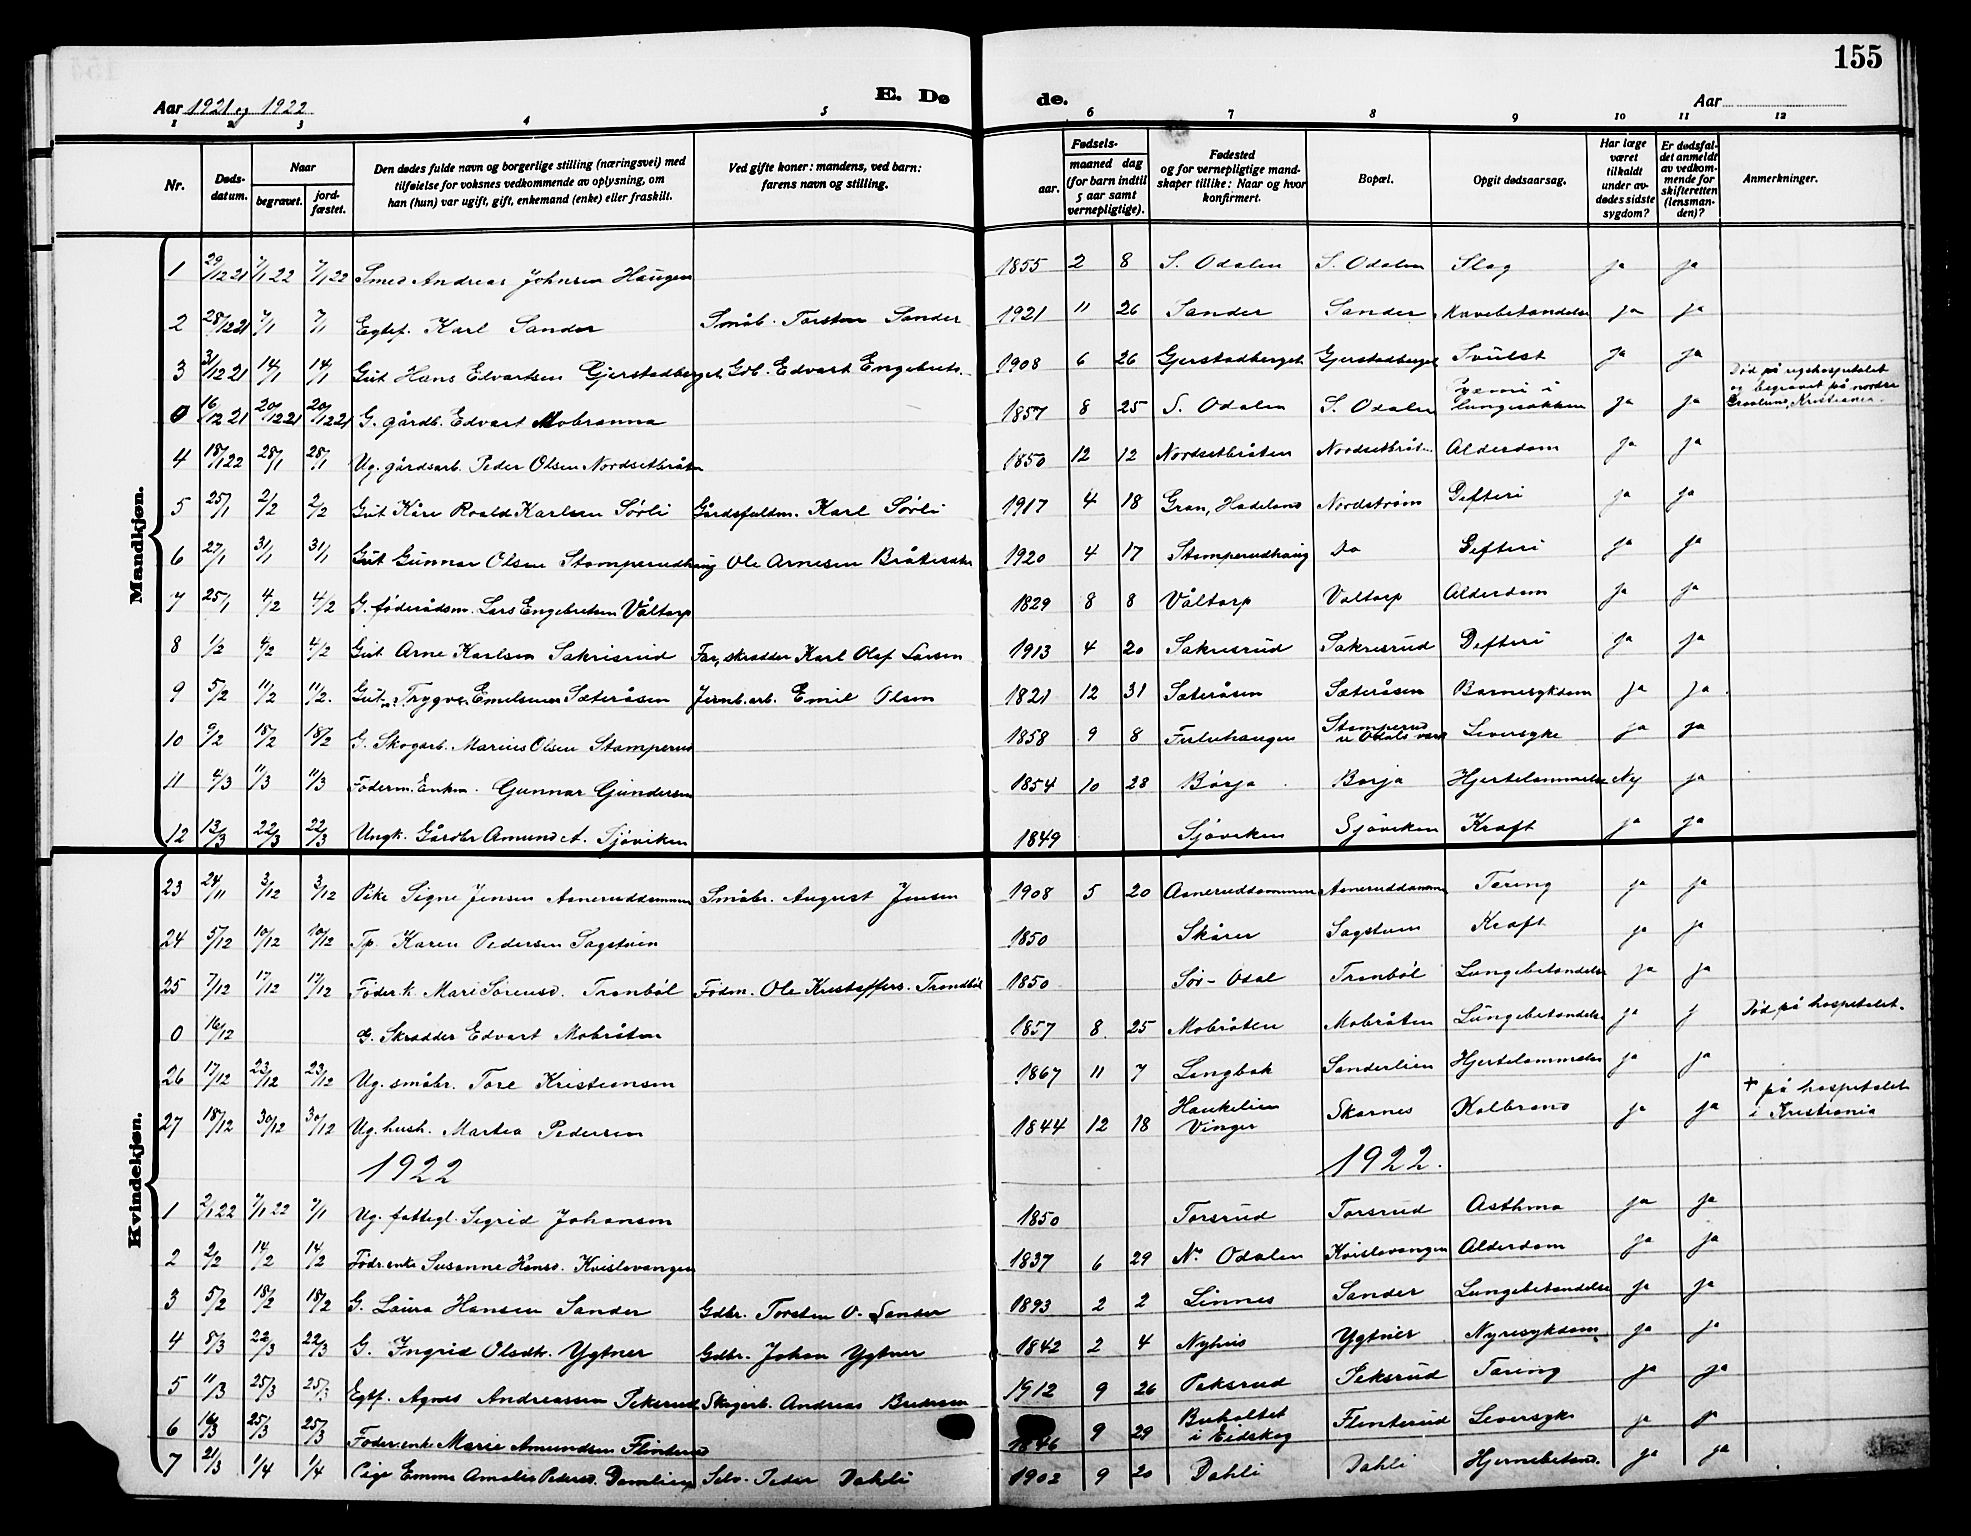 155
Aar 1921 og 1922 E. Dø de. Aar
1 2 3 4 5 6 7 8 9 10 11 12
Nr. Døds-datum. Naar begravet. jord-fæstet. Den dødes fulde navn og borgerlige stilling (næringsvei) med tilføielse for voksnes vedkommende av oplysning, om han (hun) var ugift, gift, enkemand (enke) eller fraskilt. Ved gifte koner: mandens, ved barn: farens navn og stilling. Fødsels- aar. maaned dag (for barn indtil 5 aar samt vernepligtige). Fødested og for vernepligtige mand-skaper tillike: Naar og hvor konfirmert. Bopæl. Opgit dødsaarsag. Har læge været tilkaldt under av-dødes sidste sygdom? Er dødsfal-det anmeldt av vedkom-mende for skifteretten (lensman-den)? Anmerkninger.
Mandkjøn.
1 29/12 21 7/1 22 7/1 22 Smed Andreas Johnsen Haugen 1855 2 8 S. Odalen S. Odalen Slag ja ja
2 28/12 21 7/1 7/1 Egtef. Karl Sander Småb. Torsten Sander 1921 11 26 Sander Sander ja ja
3 31/12 21 14/1 14/1 Gut Hans Edvartsen Gjerstadberget Gdb. Edvart Engebrets. 1908 6 26 Gjerstadberget Gjerstadberget Svulst ja ja
0 16/12 21 20/12 21 20/12 21 G. gårdb. Edvart Mobranna 1857 8 25 S. Odalen S. Odalen i lungesækken ja ja Død på rigshospitalet og begravet på nordre Gravlund, Kristiania.
4 18/1 22 28/1 28/1 Ug. gårdsarb. Peder Olsen Nordsetbråten 1850 12 12 Nordsetbråten Nordsetbråten Alderdom ja ja
5 25/1 2/2 2/2 Gut Kåre Roald Karlsen Sørli Gårdsfuldm. Karl Sørli 1917 4 18 Gran, Hadeland Nordstrøm Difteri ja ja
6 27/1 31/1 31/1 Gut Gunnar Olsen Stomperudhaug Ole Arnesen Bråtesæter 1920 4 17 Stomperudhaug Do Difteri ja ja
7 25/1 4/2 4/2 G. føderådsm. Lars Engebretsen Våltorp 1829 8 8 Våltorp Valtorp Alderdom ja ja
8 1/2 4/2 4/2 Gut Arne Karlsen Sakrisrud Far, skrædder Karl Olaf Larsen 1913 4 20 Sakrisrud Sakrisrud Difteri ja ja
9 5/2 11/2 11/2. Gut Trygve Emelsen Sæteråsen Jernb.arb. Emil Olsen 1821 12 31 Sæteråsen Sæteråsen Barnesykdom ja ja
10 9/2 18/2 18/2 G. Skogarb. Marius Olsen Stomperud 1858 9 8 Stomperud Leversyke ja ja
11 4/3 11/3 11/3 Føderm. Enkm. Gunnar Gundersen 1854 10 28 Børja Børja Hjertelammelse Nej ja
12 13/3 22/3 22/3 Ungk. Gårdbr Amund A. Sjøviken 1849 Sjøviken Sjøviken Kræft ja ja
Kvindekjøn.
23 24/11 3/12 3/12 Pike Signe Jensen Asneruddammen Småbr. August Jensen 1908 5 20 Asneruddammen Asneruddammen Tæring ja ja
24 5/12 10/12 10/12 Tp. Karen Pedersen Sagstuen 1850 Skårer Sagstuen Kræft ja ja
25 7/12 17/12 17/12 Føder.k. Mari Sørensd. Tronbøl Fødm. Ole Kristoffers. Trondbøl 1850 Sør-Odal Tronbøl Lungebetændelse ja ja
0 16/12 G. Skrædder Edvart Mobråten 1857 8 25 Mobråten Mobråten Lungebetændelse ja j Død på hospitalet.
26 17/12 23/12 23/12 Ug. småbr. Tore Kristiansen 1867 11 7 Langbak Sanderlien Hjertelammelse ja ja
27 18/12 30/12 30/12 Ug. hush. Martea Pedersen 1844 12 18 Haukelien Vinger Skarnes Kolbrand ja ja † på hospitalet i Kristiania
1922 1922.
1 2/1 22 7/1 22 7/1 Ug. fattegl. Sigrid Johansen 1850 Torsrud Torsrud Asthma ja ja
2 2/2 14/2 14/2 Fødr.enke Susanne Hansd. Kvislevangen 1837 6 29 N. Odalen Kvislevangen Alderdom ja ja
3 5/2 18/2 18/2 G. Laura Hansen Sander Gdbr. Torsten O. Sander 1893 2 2 Linnes Sander Lungebetændelse ja ja
4 8/3 22/3 22/3 G. Ingrid Olsdtr. Ygtner Gdbr. Johan Ygtner 1842 2 4 Nyhus Ygtner Nyresykdom ja ja
5 11/3 25/3 25/3 Egtf. Agnes Andreassen Peksrud Skogarb. Andreas 1912 9 26 Peksrud Peksrud Tæring ja ja
6 16/3 25/3 25/3 Føder.enke Marie Amundsen Flinterud 1846 9 29 Buholtet i Eidskog Flinterud Leversyke ja
7 21/3 1/4 1/4 Pige Emma Amalie Pedersd. Selv. Peder Dahli 1902 9 20 Dahli Dahli Hjernebetænd. ja ja